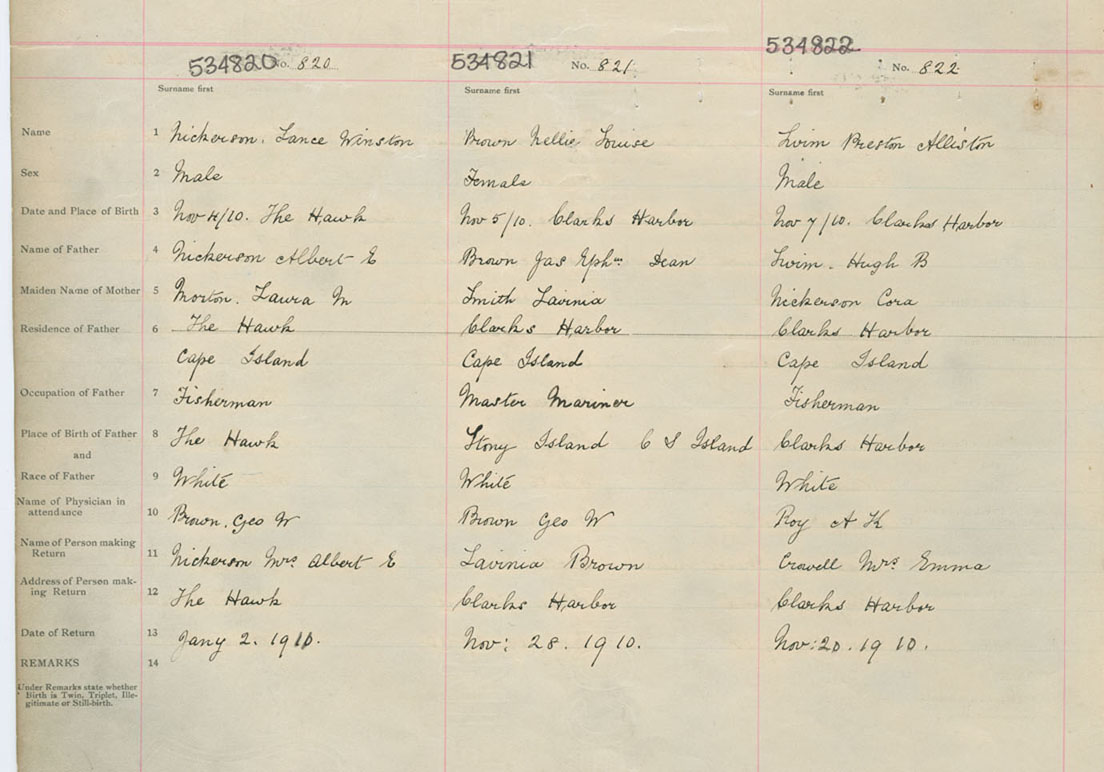 534820 No. 820 534821 No. 821 534822 No. 822
Surname first Surname first Surname first
Name 1 Nickerson. Lance Winston Brown Nellie Louise Swim Preston Alliston
Sex 2 Male Female Male
Date and Place of Birth 3 Nov 4/10. The Hawk Nov 5/10. Clarks Harbor Nov 7/10. Clarks Harbor
Name of Father 4 Nickerson Albert E Brown Jas Ephm Dean Swim. Hugh B
Maiden Name of Mother 5 Morton. Laura M Smith Lavinia Nickerson Cora
Residence of Father 6 The Hawk Clarks Harbor Clarks Harbor
Cape Island Cape Island Cape Island
Occupation of Father 7 Fisherman Master Mariner Fisherman
Place of Birth of Father 8 The Hawk Stony Island C S Island Clarks Harbor
and
Race of Father 9 White White White
Name of Physician in
attendance 10 Brown. Geo W Brown Geo W Roy A K
Name of Person making
Return 11 Nickerson Mrs Albert E Lavinia Brown Crowell Mrs Emma
Address of Person mak-
ing Return 12 The Hawk Clarks Harbor Clarks Harbor
Date of Return 13 Jany 2. 1910. Nov: 28. 1910. Nov: 20. 1910.
REMARKS 14
Under Remarks state whether
Birth is Twin, Triplet, Ille-
gitimate or Still-birth.